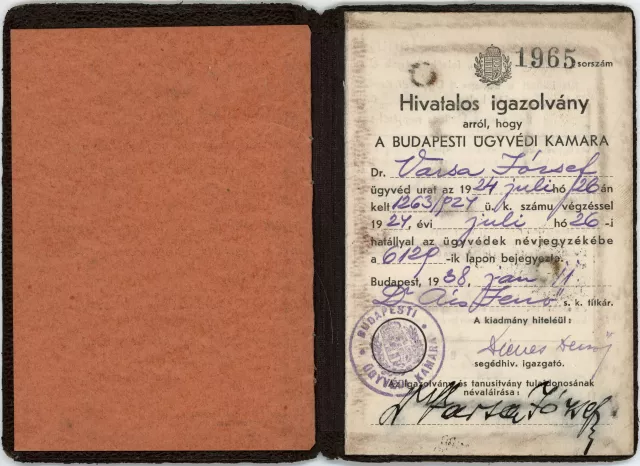 1965 sorszám
Hivatalos igazolvány
arról, hogy
A BUDAPESTI ÜGYVÉDI KAMARA
Dr. Varsa József
ügyvéd urat az 1924 juli hó 26 án
kelt 1263/924 ü. k. számu végzéssel
1924, évi juli hó 26-i
hatállyal az ügyvédek névjegyzékébe
a 6129-ik lapon bejegyezte.
Budapest, 1938, jan 11.
Dr Jenő s. k. titkár.
A kiadmány hiteléül:
segédhiv. igazgató.
BUDAPESTI ÜGYVÉDI KAMARA
Az igazolvány és tanusitvány tulajdonosának
névaláirása:
Dr Varsa József